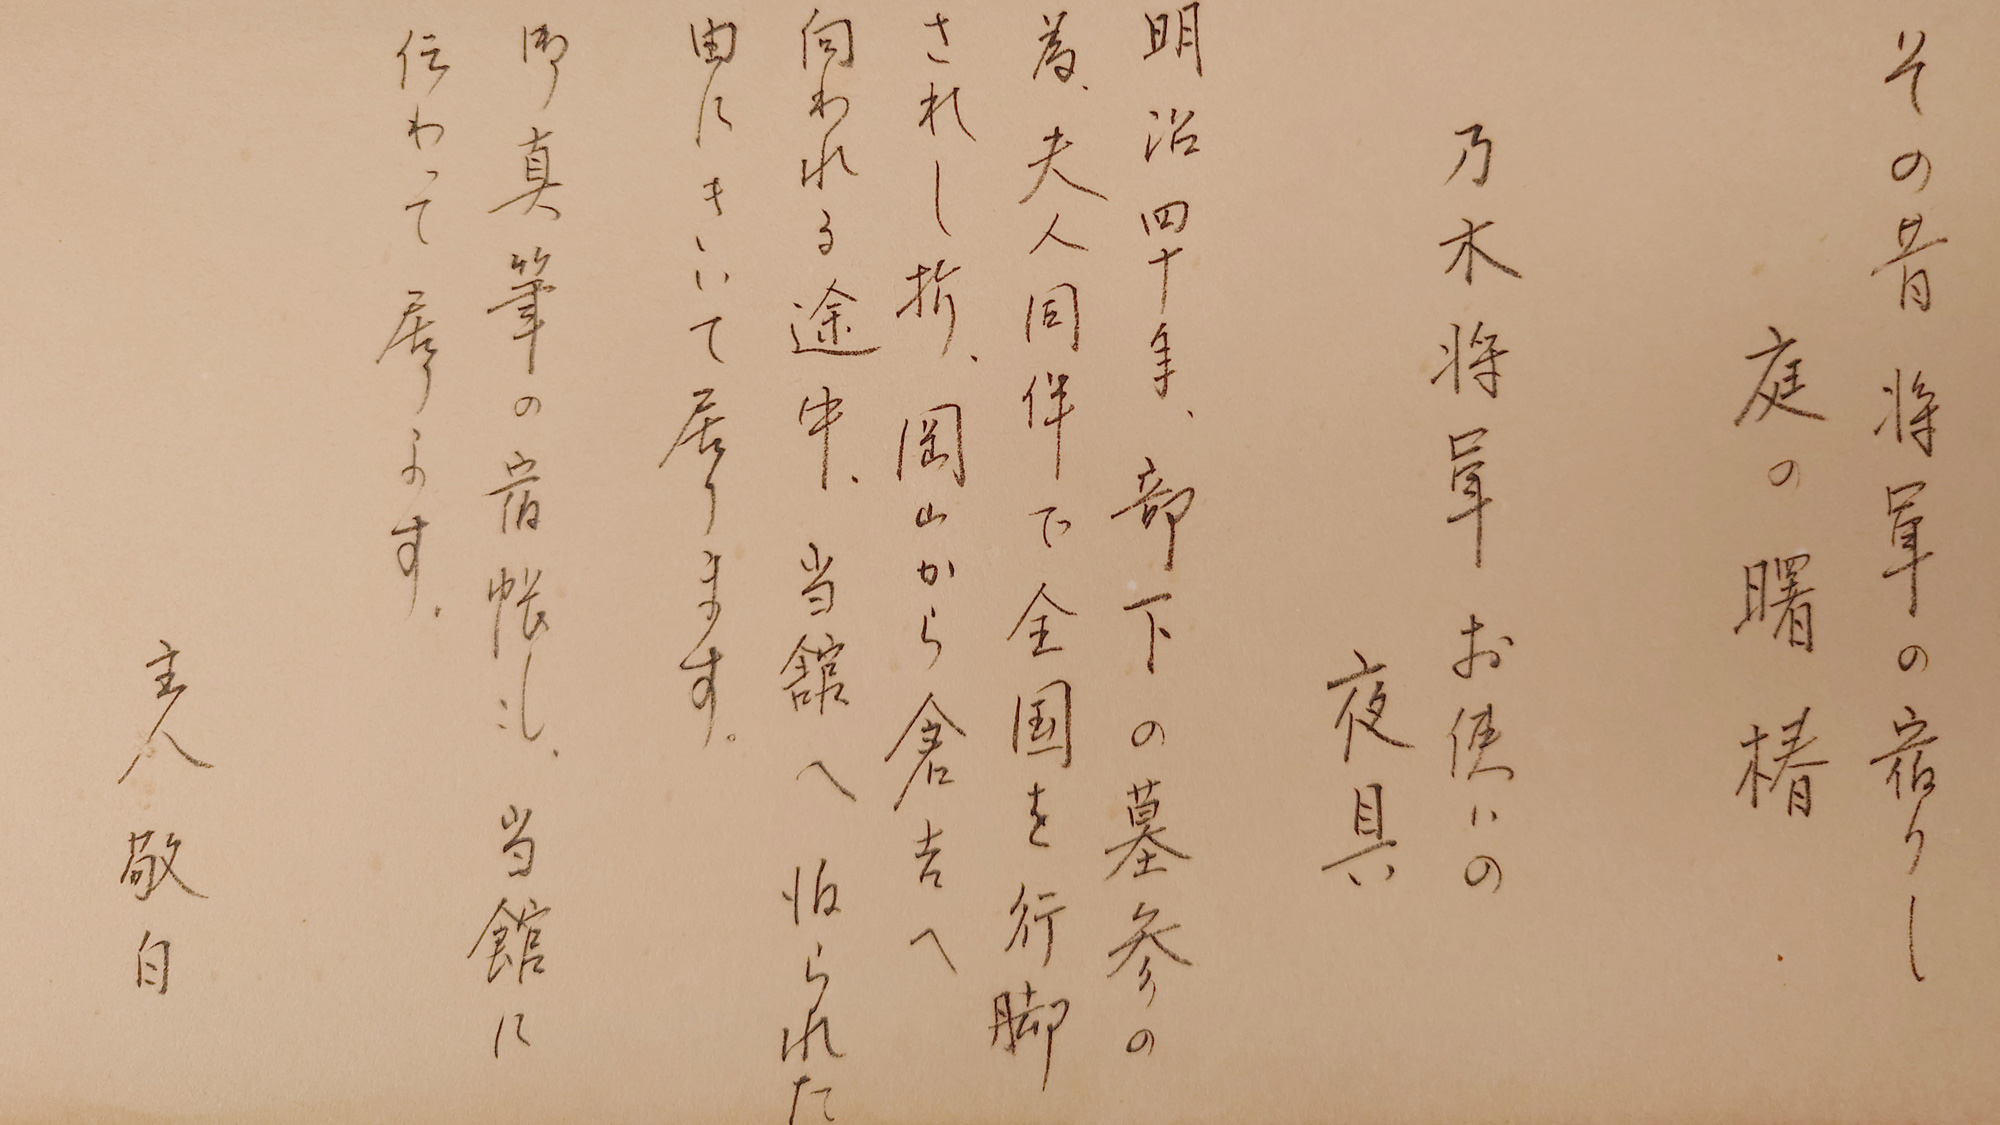 その昔将軍の宿りし
庭の曙椿
乃木将軍お使いの
夜具
明治四十年、部下の墓参の
為、夫人同伴で全国を行脚
されし折、岡山から倉吉へ
向われる途中、当舘へ泊られた
由にきいて居ります。
御真筆の宿帳も、当舘に
伝わって居ります。
主人敬白